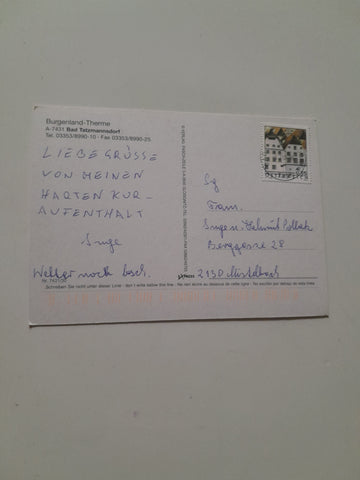 Burgenland-Therme
A-7431 Bad Tatzmannsdorf
Tel. 03353/8990-10 · Fax 03353/8990-25
LIEBE GRÜSSE
VON MEINEN
HARTEN KUR-
AUFENTHALT
Inge
Wetter noch besch.
Nr. 7431/30
Schreiben Sie nicht unter dieser Linie · don't write below this line · Ne rien écrire au dessous de cette ligne · No escribir por debajo de esta línea
Sg
Fam.
Helmut
Berggasse 28
2130 Mistelbach